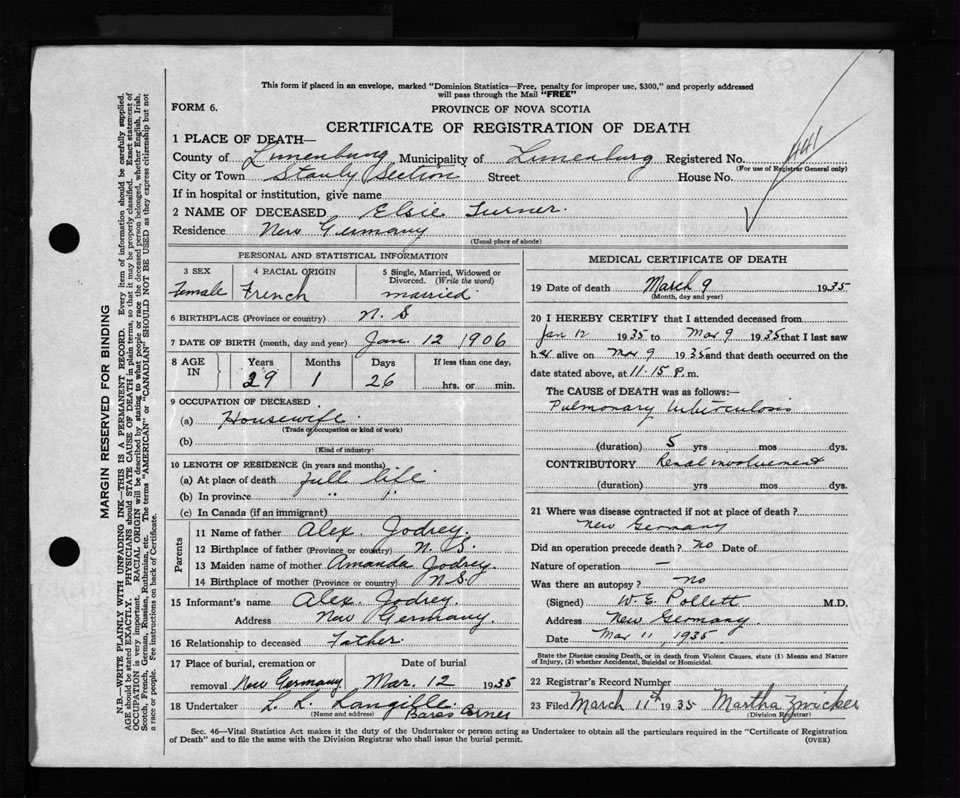 This form if placed in an envelope, marked "Dominion Statistics—Free, penalty for improper use, $300," and properly addressed
will pass through the Mail "FREE"
FORM 6.
PROVINCE OF NOVA SCOTIA
CERTIFICATE OF REGISTRATION OF DEATH
1 PLACE OF DEATH—
County of Lunenburg Municipality of Lunenburg Registered No. 441
(For use of Registrar General only)
City or Town Stanly Section Street House No.
If in hospital or institution, give name
2 NAME OF DECEASED Elsie Turner.
Residence New Germany
(Usual place of abode)
PERSONAL AND STATISTICAL INFORMATION
3 SEX 4 RACIAL ORIGIN 5 Single, Married, Widowed or Divorced. (Write the word)
Female French married
6 BIRTHPLACE (Province or country) N. S
7 DATE OF BIRTH (month, day and year) Jan. 12 1906
8 AGE IN Years Months Days If less than one day,
29 1 26 hrs. or min.
9 OCCUPATION OF DECEASED
(a) Housewife.
(Trade or occupation or kind of work)
(b)
(Kind of industry)
10 LENGTH OF RESIDENCE (in years and months)
(a) At place of death full life
(b) In province " "
(c) In Canada (if an immigrant)
Parents
11 Name of father Alex. Jodrey.
12 Birthplace of father (Province or country) N. S.
13 Maiden name of mother Amanda Jodrey.
14 Birthplace of mother (Province or country) N S.
15 Informant's name Alex. Jodrey.
Address New Germany.
16 Relationship to deceased Father.
17 Place of burial, cremation or Date of burial
removal New Germany Mar. 12 1935
18 Undertaker L. L. Langille.
(Name and address) Bares Corner
MEDICAL CERTIFICATE OF DEATH
19 Date of death March 9 1935
(Month, day and year)
20 I HEREBY CERTIFY that I attended deceased from
Jan 12 1935 to Mar 9 1935 that I last saw
her alive on Mar 9 1935 and that death occurred on the
date stated above, at 11.15 P.m.
The CAUSE OF DEATH was as follows:—
Pulmonary tuberculosis
(duration) 5 yrs mos dys.
CONTRIBUTORY Renal involvement
(duration) yrs mos dys.
21 Where was disease contracted if not at place of death?
New Germany
Did an operation precede death? no Date of
Nature of operation —
Was there an autopsy? no
(Signed) W. E. Pollett M.D.
Address New Germany.
Date Mar 11, 1935.
State the Disease causing Death, or in death from Violent Causes, state (1) Means and Nature
of Injury, (2) whether Accidental, Suicidal or Homicidal.
22 Registrar's Record Number
23 Filed March 11th 1935 Martha Zwicker
(Division Registrar)
Sec. 46—Vital Statistics Act makes it the duty of the Undertaker or person acting as Undertaker to obtain all the particulars required in the "Certificate of Registration
of Death" and to file the same with the Division Registrar who shall issue the burial permit.
(OVER)
MARGIN RESERVED FOR BINDING
N.B.—WRITE PLAINLY WITH UNFADING INK—THIS IS A PERMANENT RECORD. Every item of information should be carefully supplied.
AGE should be stated EXACTLY. PHYSICIANS should STATE CAUSE OF DEATH in plain terms, so that it may be properly classified. Exact statement of
OCCUPATION is very important. RACIAL ORIGIN will be described by stating to what people or race the deceased person belonged, whether English, Irish,
Scotch, French, German, Russian, Ruthenian, etc. The terms "AMERICAN" or "CANADIAN" SHOULD NOT BE USED as they express citizenship but not
a race or people. See instructions on back of Certificate.